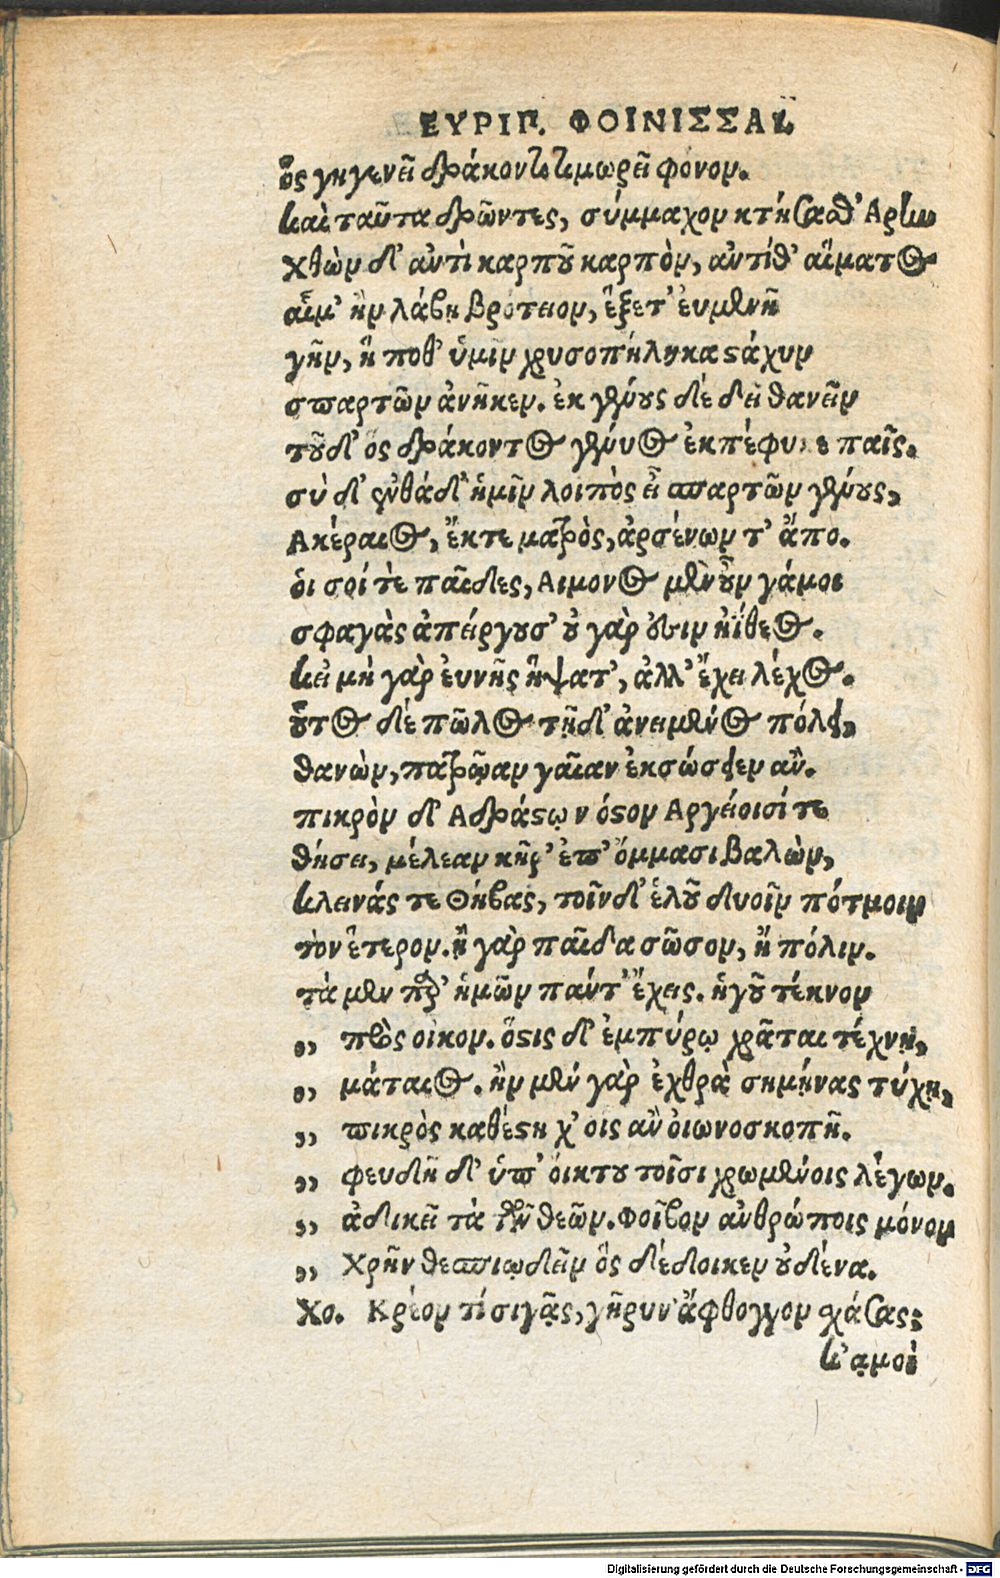 ΕΥΡΙΠ. ΦΟΙΝΙΣΣΑΙ
ὃς γηγενεῖ δράκοντι τιμωρεῖ φόνον.
καὶ ταῦτα δρῶντες, σύμμαχον κτήσασθ' Αρην
χθὼν δ' ἀντὶ καρποῦ καρπὸν, ἀντίθ' αἵματος
αἷμ' ἢν λάβῃ βρότειον, ἕξετ' ἐυμενῆ
γῆν, ἥ ποθ' ὑμῖν χρυσοπήληκα στάχυν
σπαρτῶν ἀνῆκεν. ἐκ γένους δὲ δεῖ θανεῖν
τοῦδ' ὃς δράκοντος γένυος ἐκπέφυκε παῖς.
σὺ δ' ἐνθάδ' ἡμῖν λοιπὸς εἶ σπαρτῶν γένους,
Ακέραιος, ἔκτε μητρὸς, ἀρσένων τ' ἄπο.
ὁι σοί τὲ παῖδες, Αιμονος μὲν οὖν γάμοι
σφαγὰς ἀπείργουσ' ου γὰρ ὅστιν ἠΐθεος.
κεἰ μὴ γὰρ ἐυνῆς ἥψατ', ἀλλ' ἔχει λέχος.
οὗτος δὲ πῶλος τῇδ' ἀνειμένος πόλει,
θανὼν, πατρῴαν γαῖαν ἐκσώσειεν ἂν.
πικρὸν δ' Αδράστῳ νόστον Αργείοισί τε
θήσει, μέλεαν κῆρ' ἐπ' ὄμμασι βαλὼν,
κλεινάς τε Θήβας, τοῖνδ' ἑλοῦ δυοῖν πότμοιν
τὸν ἕτερον. ἢ γὰρ παῖδα σῶσον, ἢ πόλιν.
τὰ μὲν παρ' ἡμῶν πάντ' ἔχεις. ἡγοῦ τέκνον
„ πρὸς οἶκον. ὅστις δ' ἐμπύρῳ χρᾶται τέχνῃ,
„ μάταιος. ἢν μὲν γὰρ ἐχθρὰ σημήνας τύχῃ,
„ πικρὸς καθέστη χ' οις ἂν ὀιωνοσκοπῆ.
„ ψευδῆ δ' ὑπ' ὄικτου τοῖσι χρωμένοις λέγων.
„ ἀδικεῖ τὰ τῶν θεῶν. Φοῖβον ἀνθρώποις μόνον
„ Χρῆν θεσπιῳδεῖν ὃς δέδοικεν ουδένα.
Χο. Κρέον τί σιγᾷς, γῆρυν ἄφθογγον σχάσας;
κ' ἀμοὶ
Digitalisierung gefördert durch die Deutsche Forschungsgemeinschaft - DFG